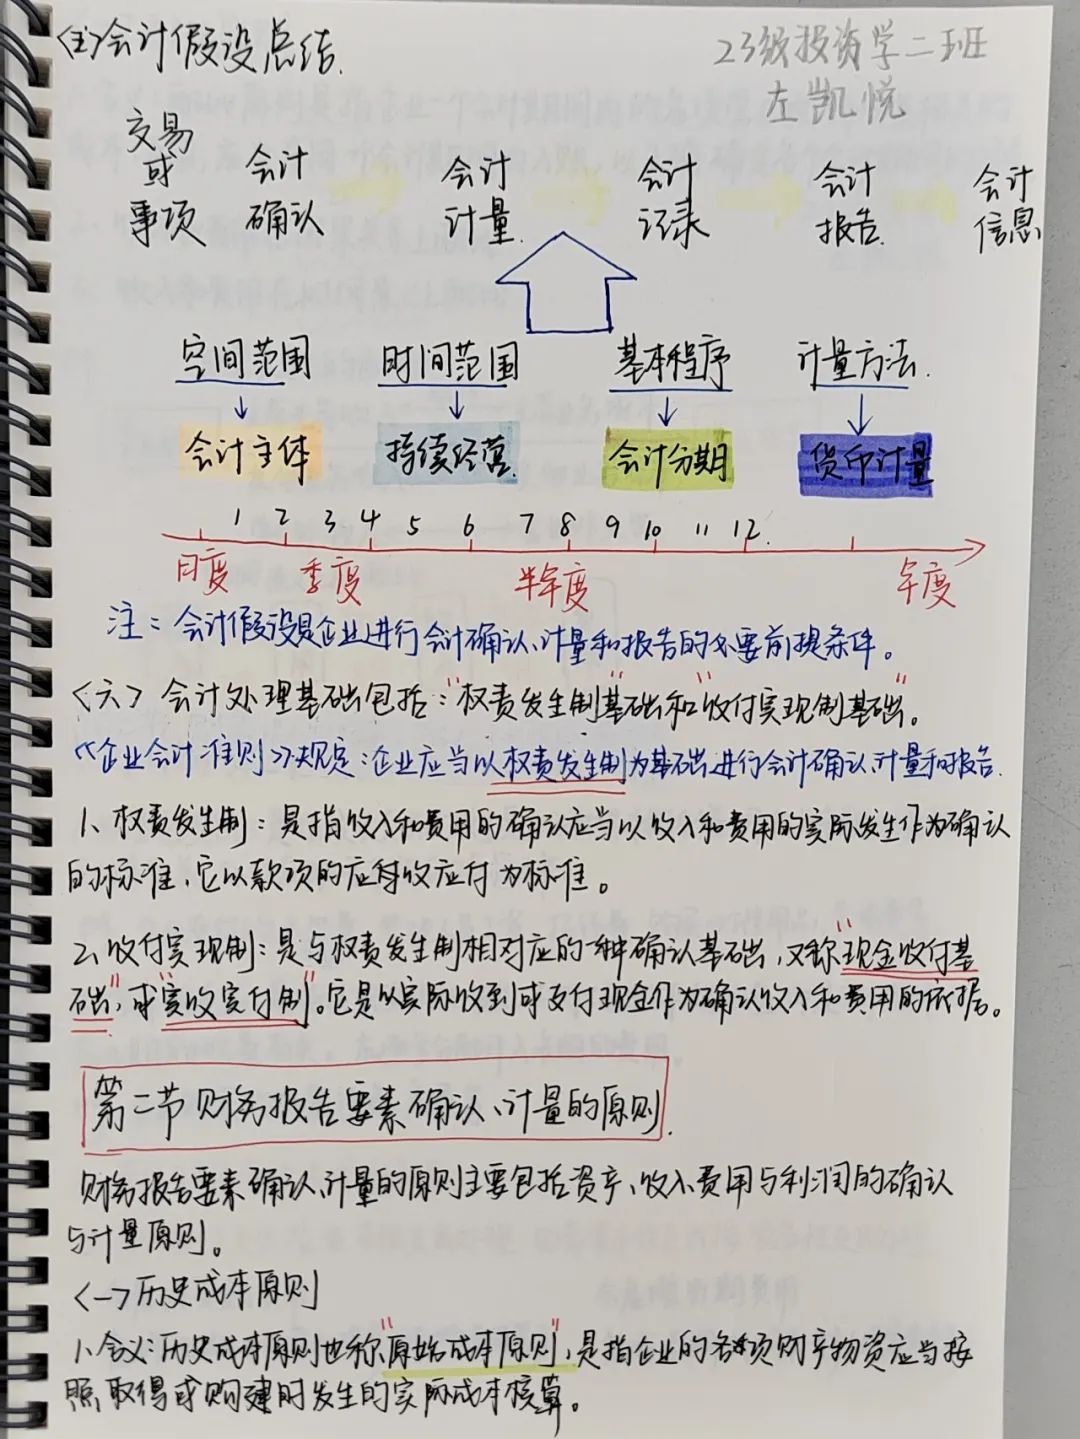 <五>会计假设总结.
23级投资学二班
左凯悦
交易或事项 会计确认 会计计量 会计记录 会计报告 会计信息
空间范围 时间范围 基本程序 计量方法.
会计主体 持续经营 会计分期 货币计量
1 2 3 4 5 6 7 8 9 10 11 12.
月度 季度 半年度 年度
注：会计假设是企业进行会计确认、计量和报告的必要前提条件。
<六> 会计处理基础包括："权责发生制基础"和"收付实现制基础"。
《企业会计准则》规定：企业应当以权责发生制为基础进行会计确认、计量和报告.
1、权责发生制：是指收入和费用的确认应当以收入和费用的实际发生作为确认
的标准，它以款项的应收应付为标准。
2、收付实现制：是与权责发生制相对应的一种确认基础，又称"现金收付基
础"，或"实收实付制"。它是以实际收到或支付现金作为确认收入和费用的依据。
第二节 财务报告要素确认、计量的原则.
财务报告要素确认、计量的原则主要包括资产、收入、费用与利润的确认
与计量原则。
<一>历史成本原则
1、含义：历史成本原则也称"原始成本原则"，是指企业的各项财产物资应当按
照取得或购建时发生的实际成本核算。